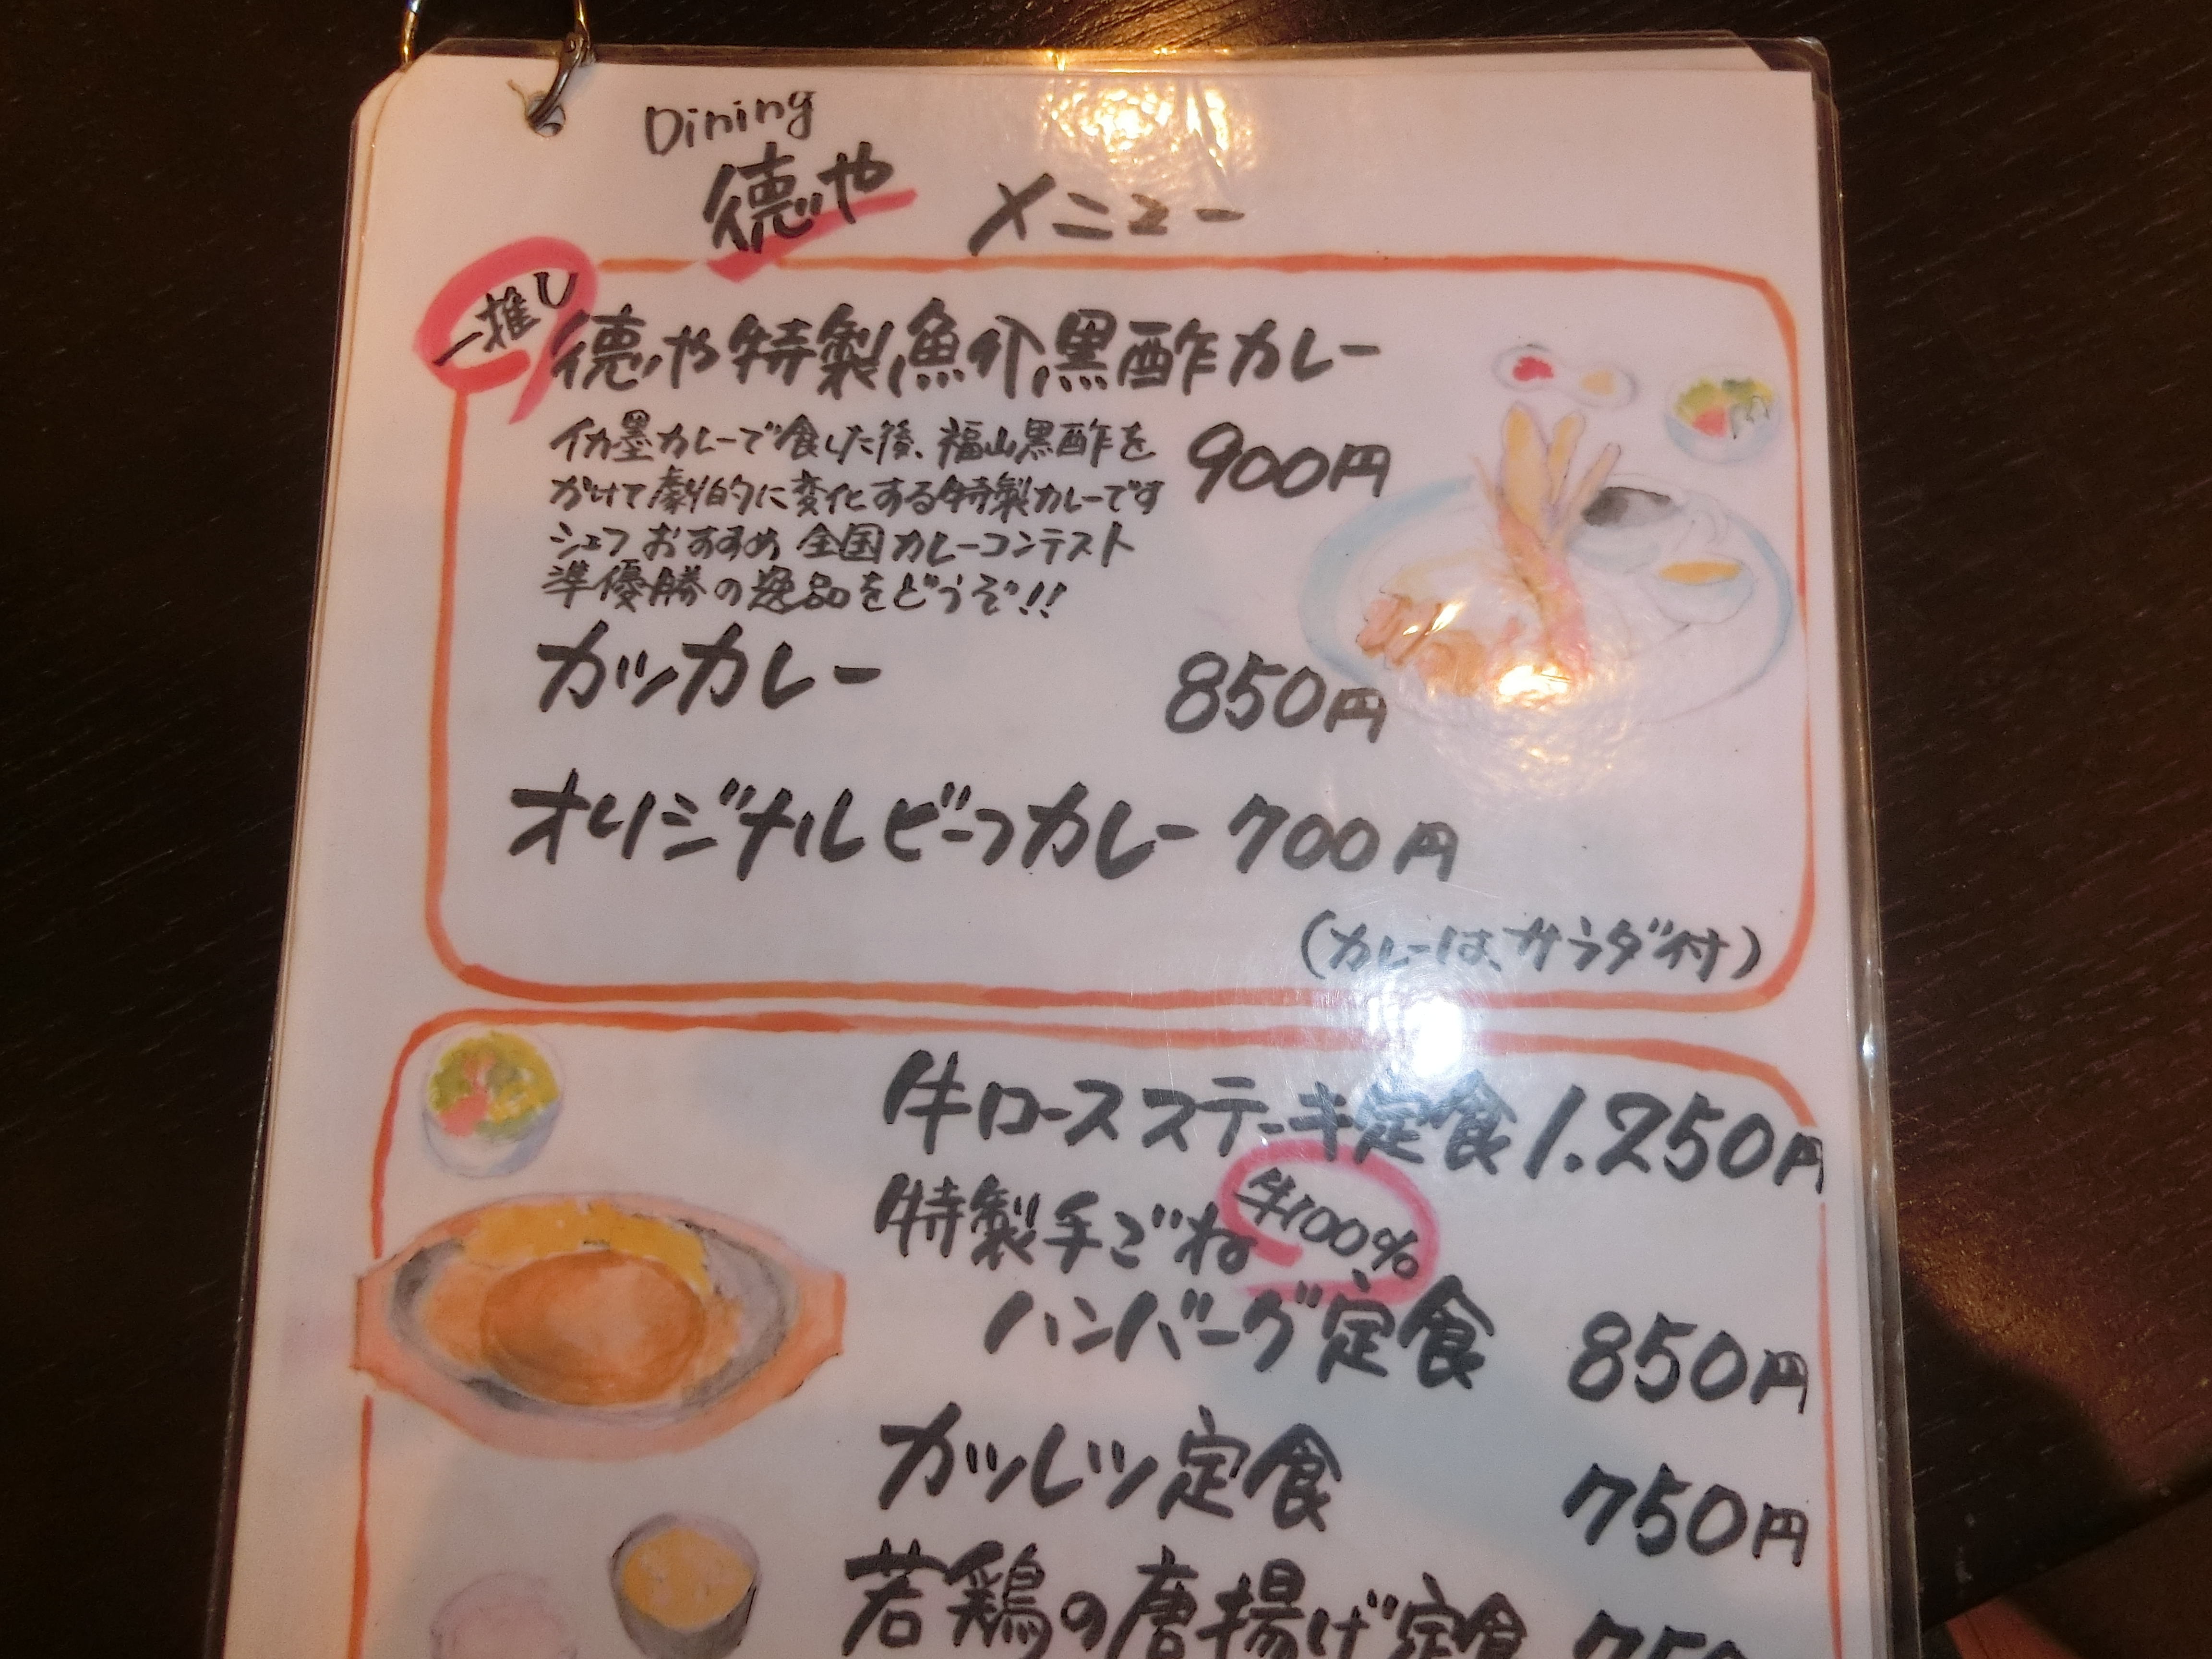 Dining
徳や メニュー
一推し
徳や特製魚介黒酢カレー
イカ墨カレーで食した後、福山黒酢を
かけて劇的に変化する特製カレーです
900円
シェフおすすめ 全国カレーコンテスト
準優勝の逸品をどうぞ!!
カツカレー 850円
オリジナルビーフカレー 700円
(カレーは、サラダ付)
牛ロースステーキ定食 1.250円
特製手ごね 牛100%
ハンバーグ定食 850円
カツレツ定食 750円
若鶏の唐揚げ定食 750